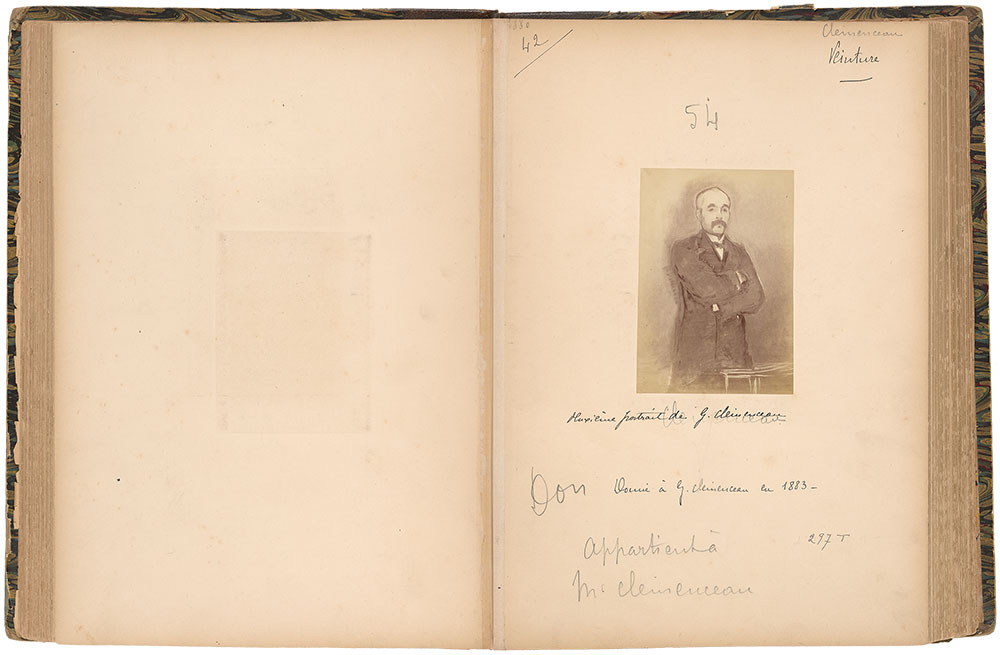 1880
42
Clemenceau
Peinture
54
Deuxième portrait de G. Clemenceau
Don
Donné à G. Clemenceau en 1883 -
297 T
Appartient à
Mr Clemenceau